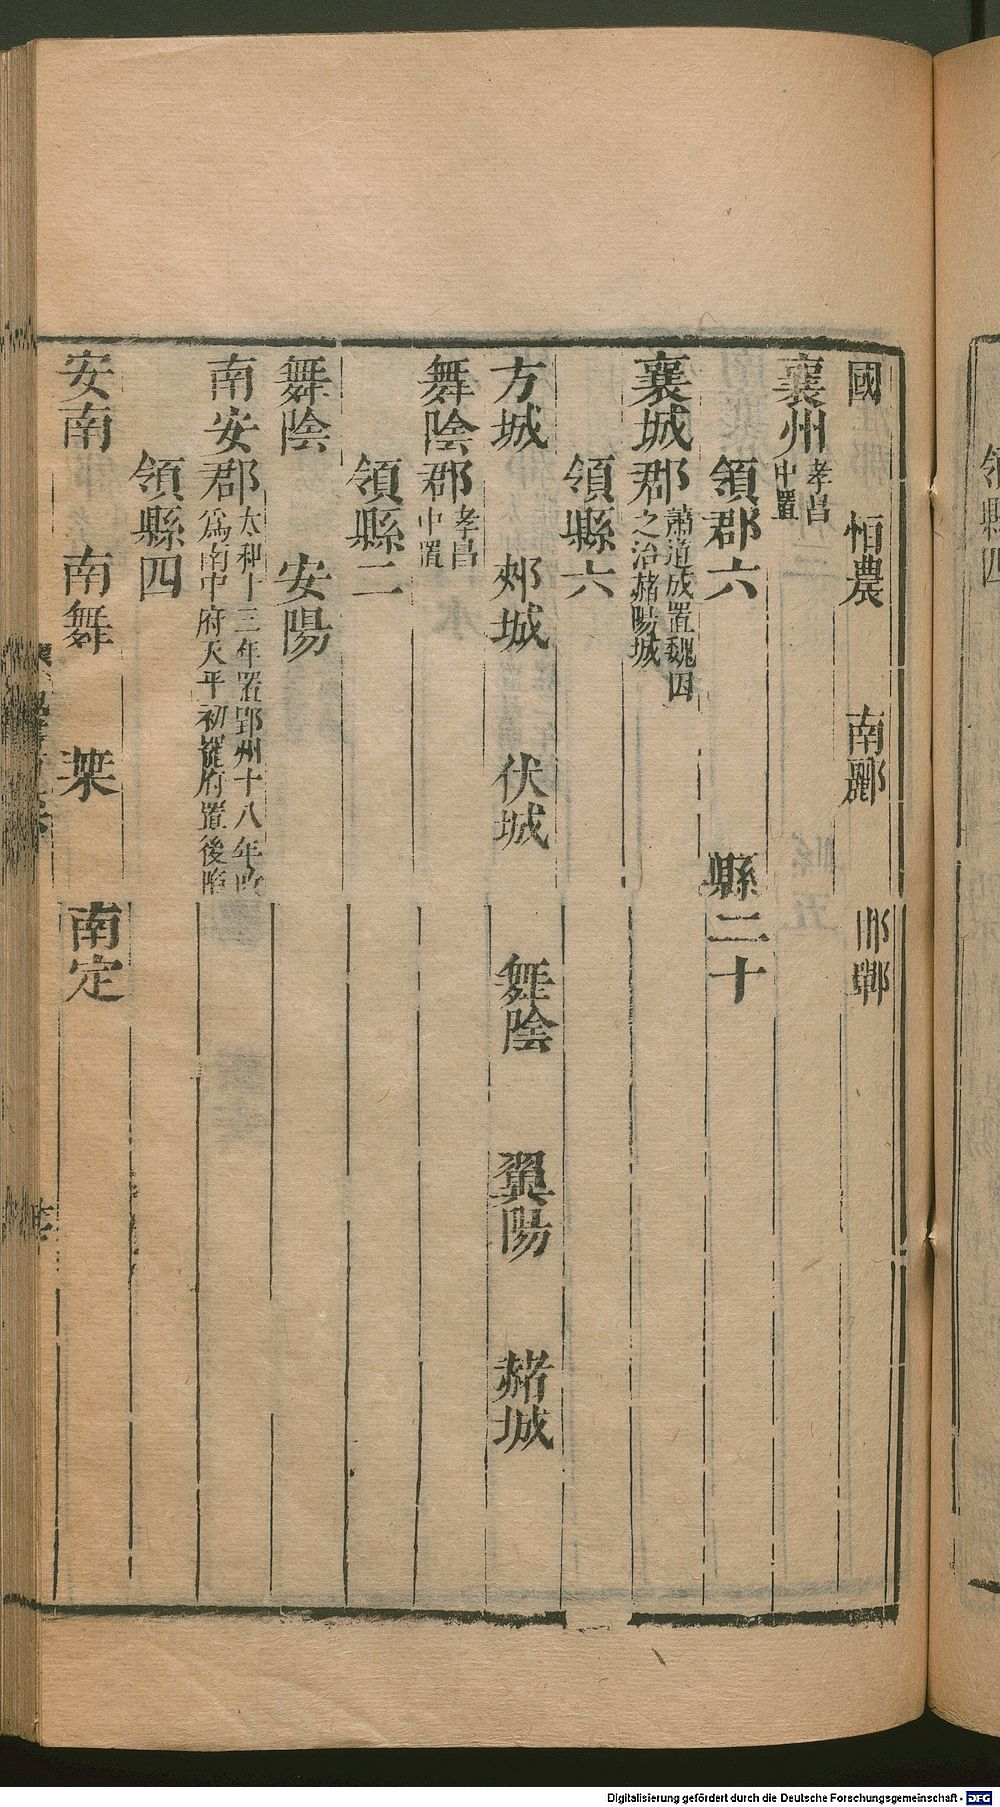 國　恒農　南酈　邯鄲
襄州孝昌中置
領郡六　縣二十
襄城郡蕭道成置魏因之治赭陽城
領縣六
方城　郟城　伏城　舞陰　翼陽　赭城
舞陰郡孝昌中置
領縣二
舞陰　安陽
南安郡太和十三年置郢州十八年改爲南中府天平初罷府置後陷
領縣四
安南　南舞　葉　南定
領縣四
Digitalisierung gefördert durch die Deutsche Forschungsgemeinschaft - DFG